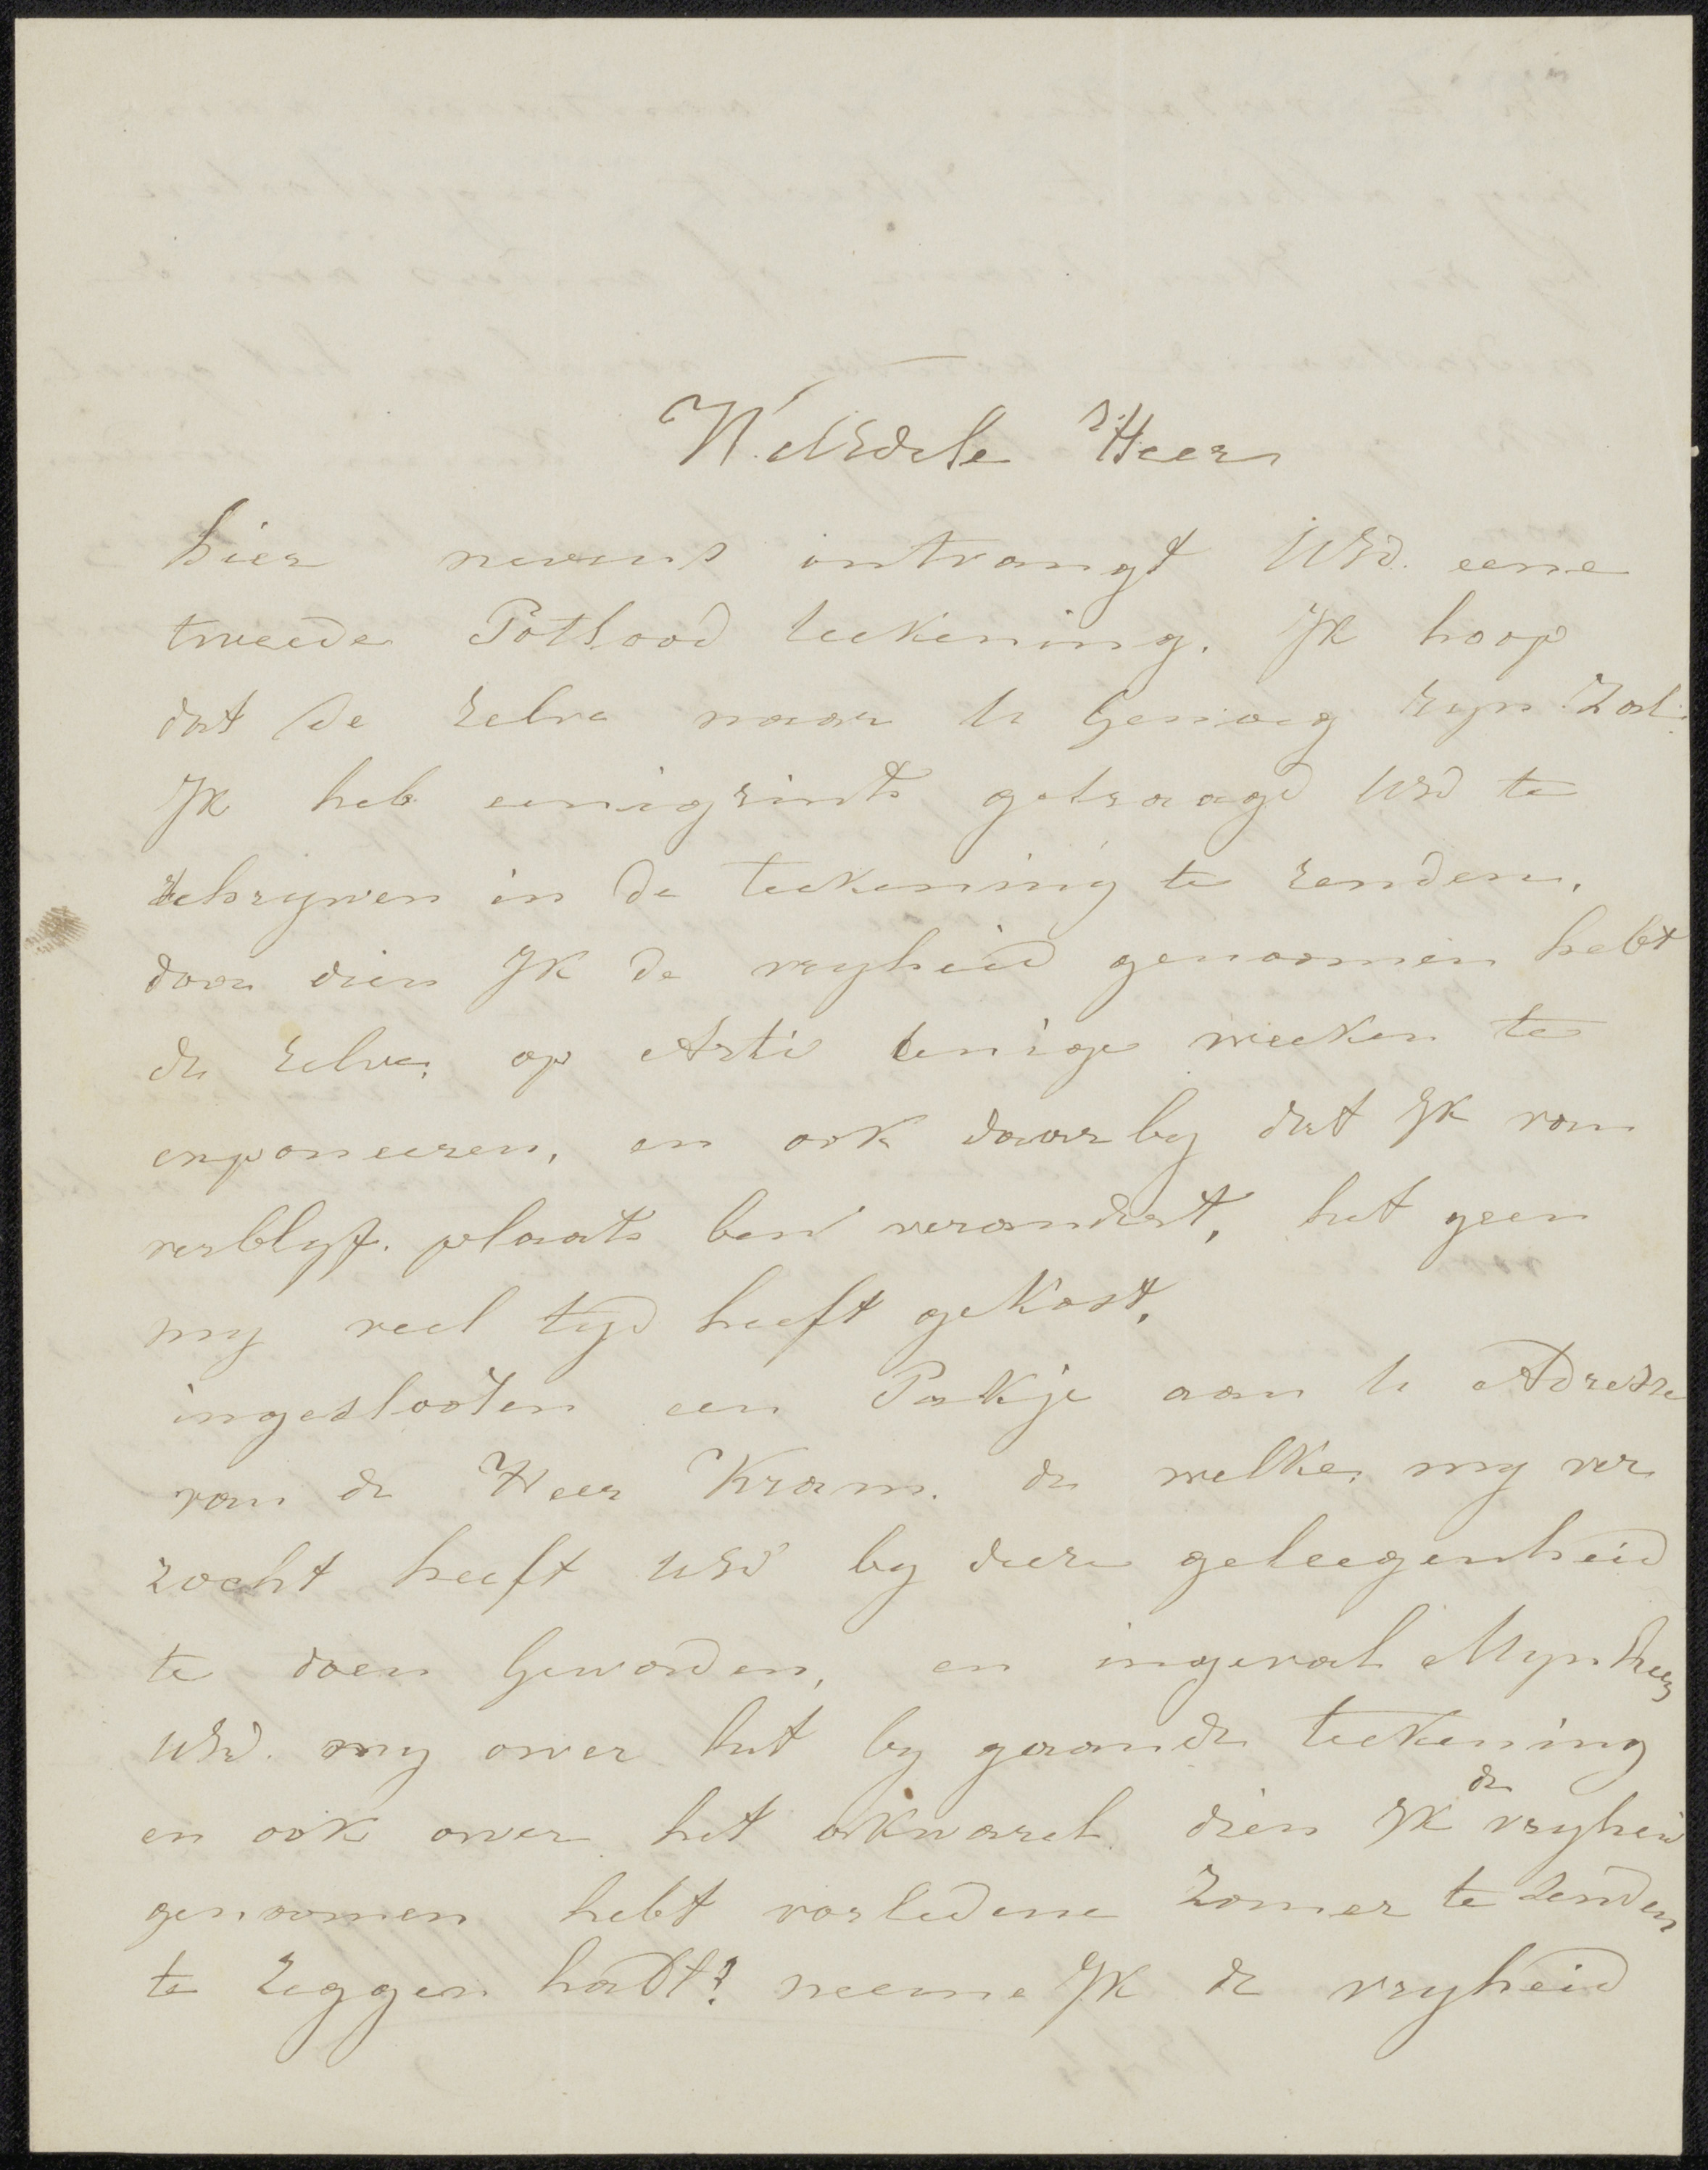 WelEdele Heer
hier nevens ontvangt UEd. eene
tweede Potlood teekening. Ik hoop
dat de zelve naar U Genoeg zyn Zal.
Ik heb eenigzints getraagd UEd te
schryven in de teekening te zenden,
door dien Ik de vryheid genoomen hebt
de zelve, op Arti eenige weeken te
exponeeren, en ook daar by dat Ik van
verblyf. plaats ben verandert, het geen
my veel tyd heeft gekost,
ingeslooten een Pakje aan U Adresse
van de Heer Kram. de welke, my ver
zocht heeft UEd by deeze geleegenheid
te doen Geworden, en ingeval Mynheer
UEd. my over het by gaande teekening
en ook over het akwarel dien Ik de vryheid
genoomen hebt voorledene Zomer te Zenden
te zeggen hadt? neeme Ik de vryheid